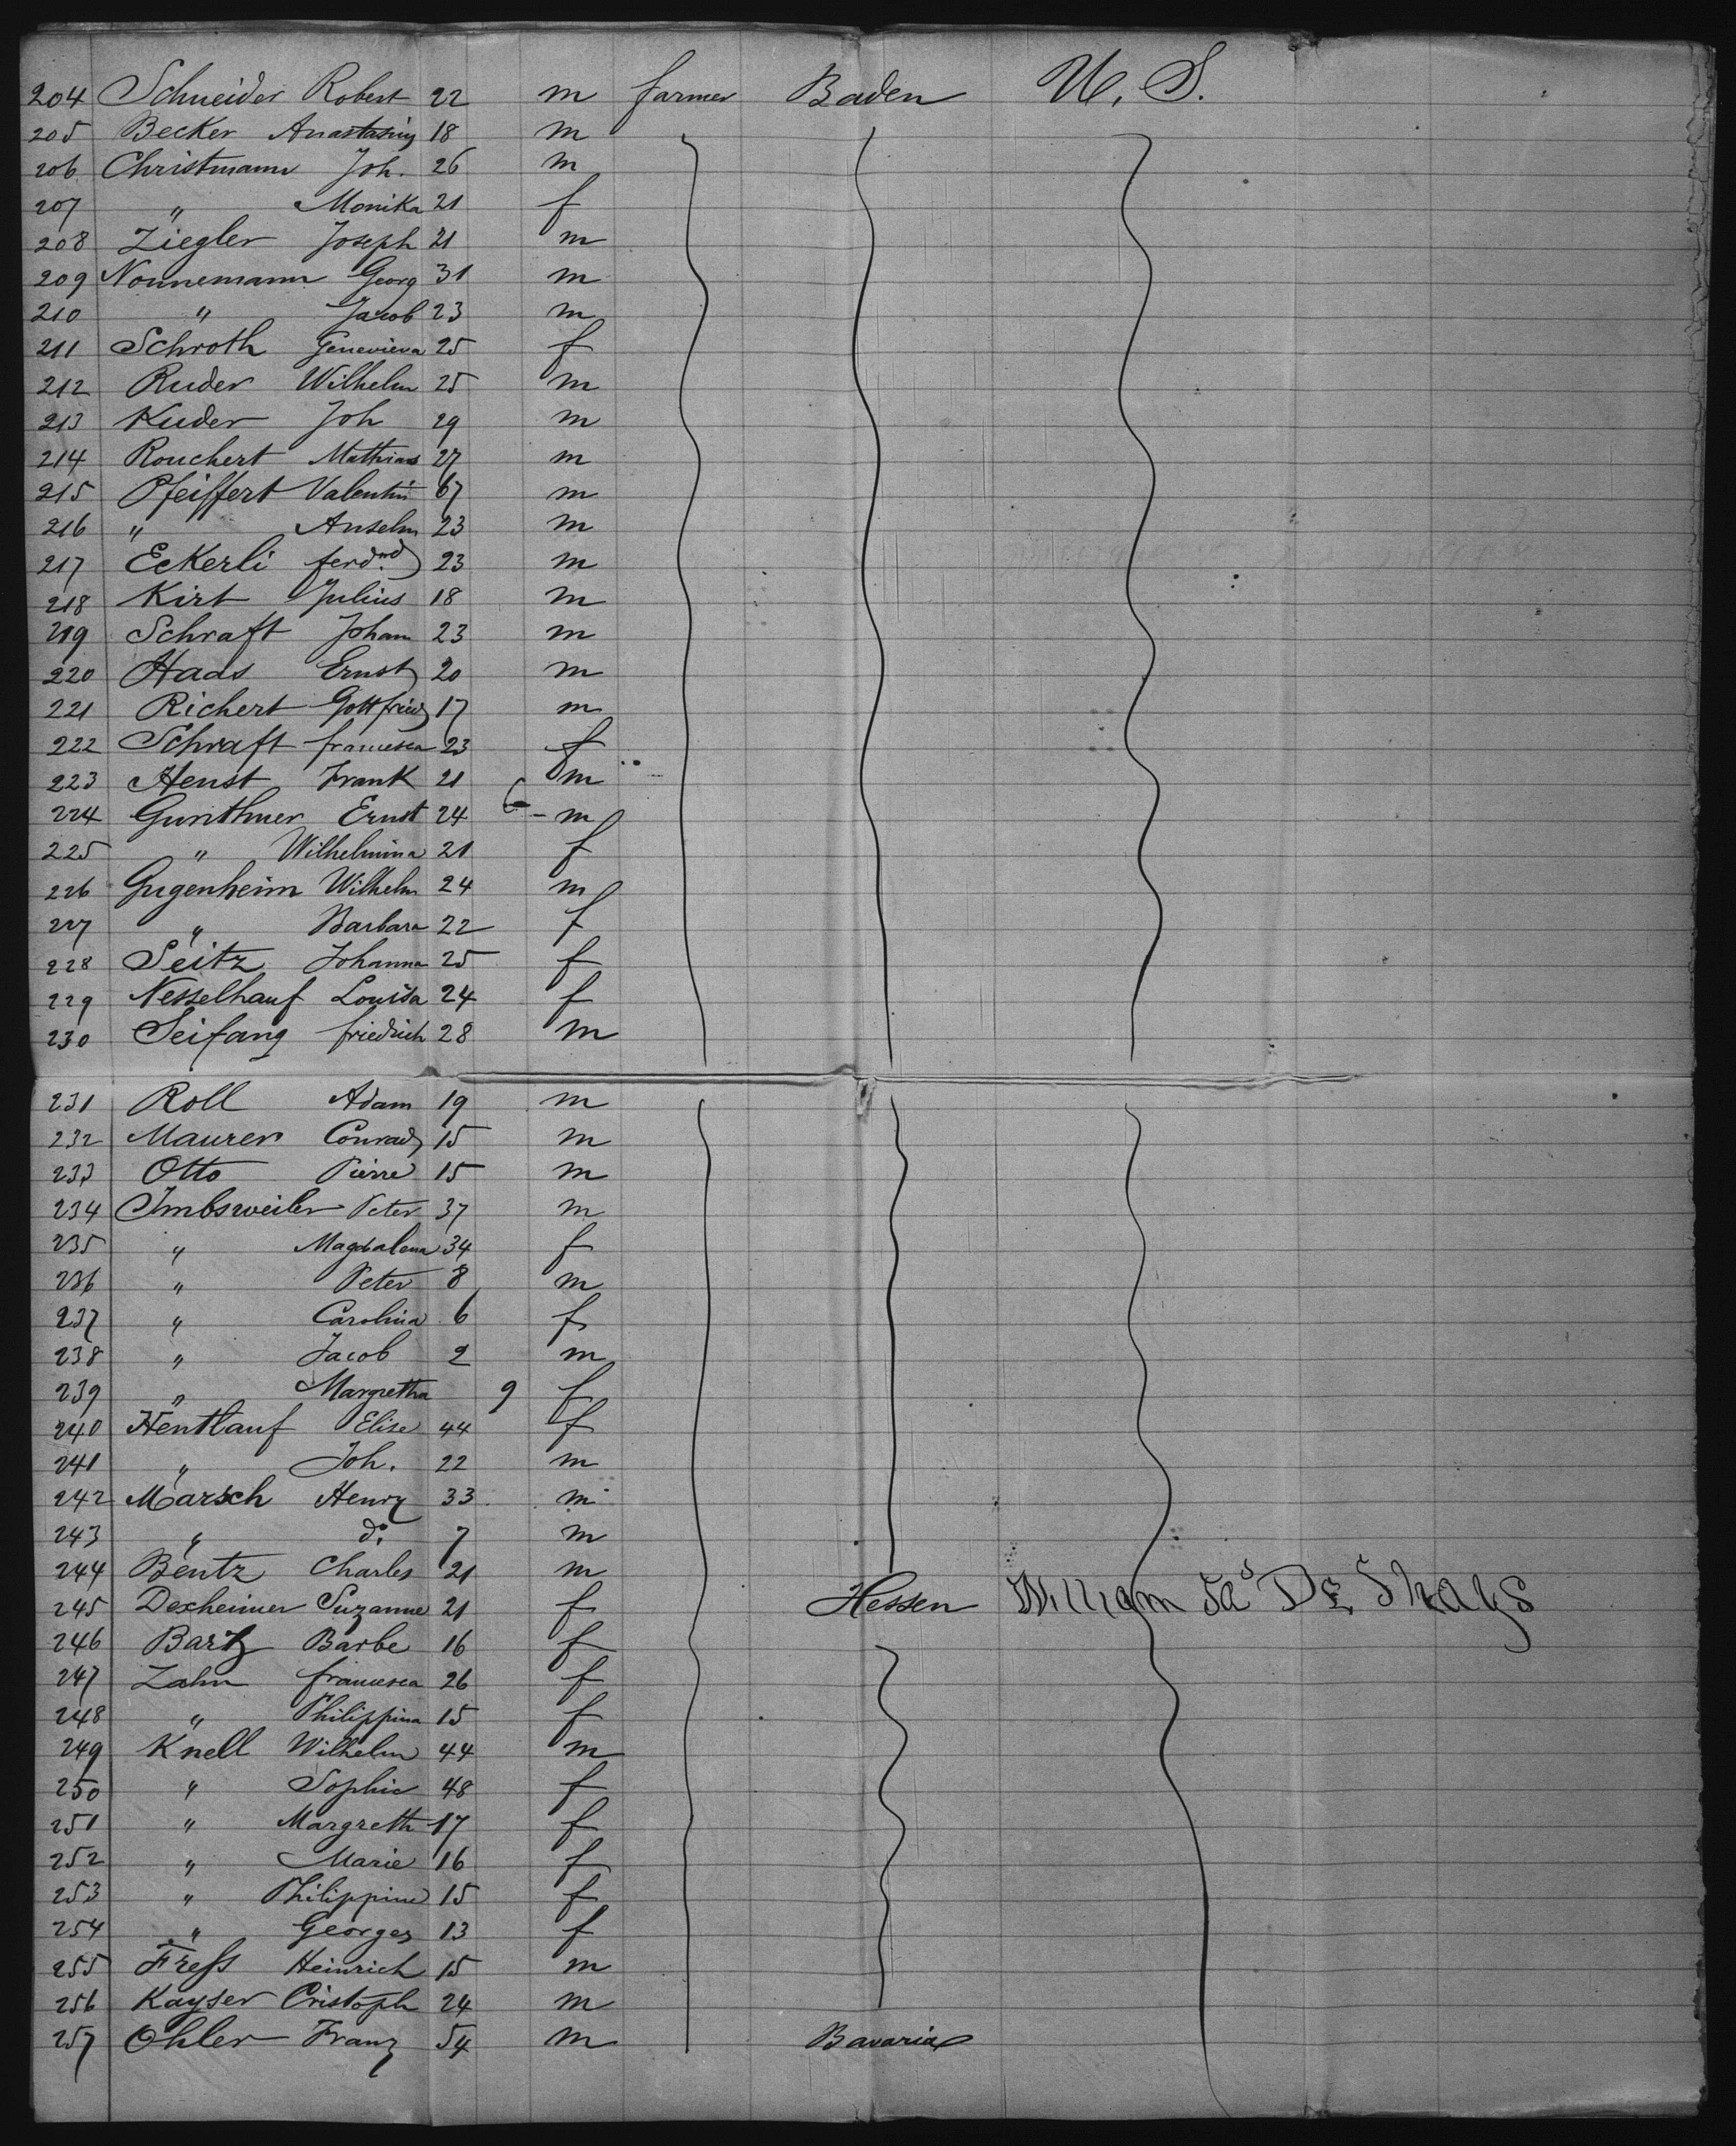 204 Schneider Robert 22 m farmer Baden U. S.
205 Becker 18 m
206 Christmann Joh. 26 m
207 " Monika 21 f
208 Ziegler Joseph 21 m
209 Nonnemann Georg 31 m
210 " Jacob 23 m
211 Schroth Genevieva 25 f
212 Ruder Wilhelm 25 m
213 Kuder Joh 29 m
214 Rouchert Mathias 27 m
215 Pfeiffert Valentin 67 m
216 " Anselm 23 m
217 Eckerli ferd.nd 23 m
218 Kirt Julius 18 m
219 Schraft Johann 23 m
220 Haas Ernst 20 m
221 Richert Gottfried 17 m
222 Schraft francesca 23 f
223 Henst Frank 21 m
224 Gunthner Ernst 24 - m
225 " Wilhelmina 21 f
226 Gugenheim Wilhelm 24 m
227 " Barbara 22 f
228 Seitz Johanna 25 f
229 Nesselhauf Louisa 24 f
230 Seifang friedrich 28 m
231 Roll Adam 19 m
232 Maurer Conrad 15 m
233 Otto Pierre 15 m
234 Imbsweiler Peter 37 m
235 " Magdalena 34 f
236 " Peter 8 m
237 " Carolina 6 f
238 " Jacob 2 m
239 " Margretha 9 f
240 Hentlauf Elise 44 f
241 " Joh. 22 m
242 Marsch Henry 33 m
243 " do. 7 m
244 Bentz Charles 21 m
245 Dexheimer Suzanne 21 f Hessen William
246 Bartz Barbe 16 f
247 Zahn francesca 26 f
248 " Philippina 15 f
249 Knell Wilhelm 44 m
250 " Sophie 48 f
251 " Margreth 17 f
252 " Marie 16 f
253 " Philippine 15 f
254 " Georges 13 f
255 Freſs Heinrich 15 m
256 Kayser Cristoph 24 m
257 Ohler Franz 54 m Bavaria